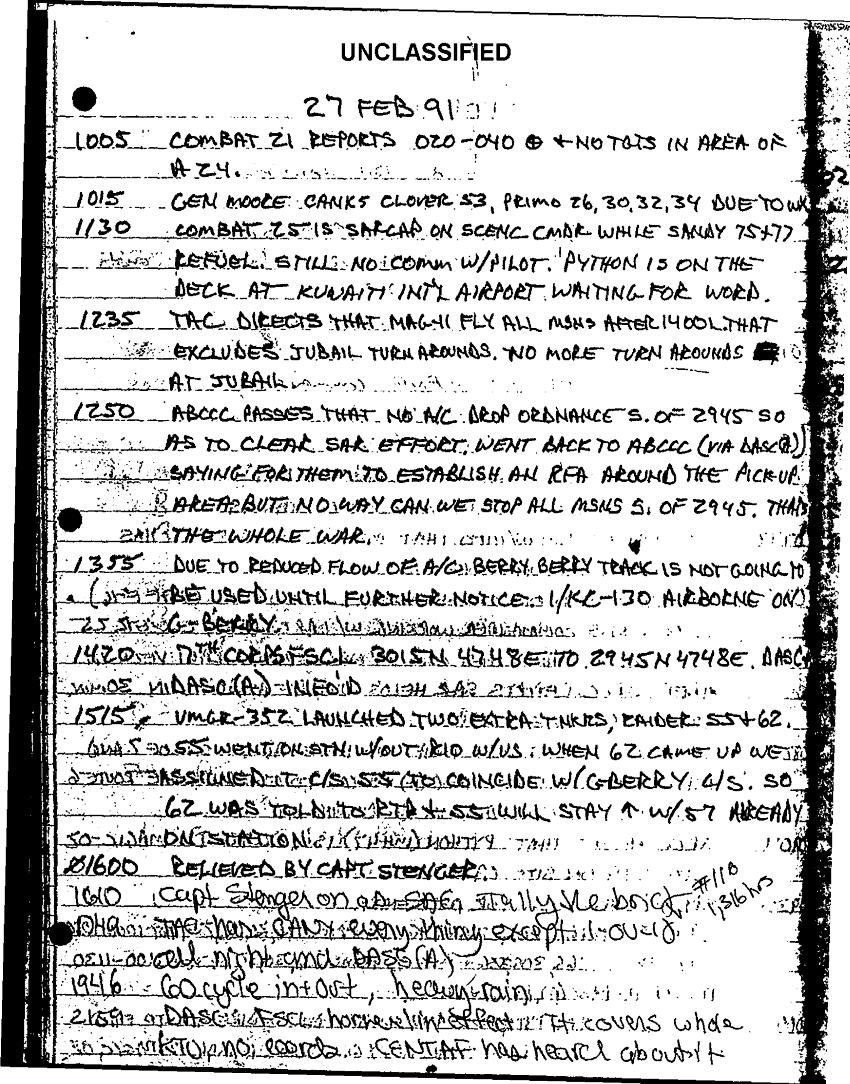 UNCLASSIFIED
27 FEB 91
1005 COMBAT 21 REPORTS 020-040 ⊕ + NO TGTS IN AREA OF
A 24.
1015 GEN MOORE CANKS CLOVER 53, PRIMO 26, 30, 32, 34 DUE TO WX
1130 COMBAT 25 IS SARCAP ON SCENE CMDR WHILE SANDY 75+77
REFUEL. STILL NO COMM W/PILOT. PYTHON IS ON THE
DECK AT KUWAITI INT'L AIRPORT WAITING FOR WORD.
1235 TAC DIRECTS THAT MAG-11 FLY ALL MSNS AFTER 1400L THAT
EXCLUDES JUBAIL TURN AROUNDS. NO MORE TURN AROUNDS
AT JUBAIL
1250 ABCCC PASSES THAT NO A/C DROP ORDNANCE S. OF 2945 SO
AS TO CLEAR SAR EFFORT. WENT BACK TO ABCCC (VIA DASC(A))
SAYING FOR THEM TO ESTABLISH AN RFA AROUND THE PICK-UP
AREA BUT NO WAY CAN WE STOP ALL MSNS S. OF 2945. THAT'S
THE WHOLE WAR.
1355 DUE TO REDUCED FLOW OF A/C, BERRY BERRY TRACK IS NOT GOING TO
BE USED UNTIL FURTHER NOTICE. 1/KC-130 AIRBORNE ON
G-BERRY.
1420 7TH CORPS FSCL 3015N 4748E TO 2945N 4748E. DASC
DASC(A) INFO'D
1515 VMGR-352 LAUNCHED TWO EXTRA TNKRS, RAIDER 55+62.
55 WENT ON STN W/OUT RIO W/US. WHEN 62 CAME UP WE
ASSIGNED IT C/S 55 (TO COINCIDE W/ G-BERRY C/S. SO
62 WAS TOLD TO RTB + 55 WILL STAY ↑ W/57 ALREADY
ON STATION
1600 RELIEVED BY CAPT STENGER
1610 Capt Stenger on Itally Vle brief #110 1,316 hrs
TAC has CANX every thing except
cell night and DASC(A)
1946 60 cycle in + out, heavy rain
DASC FSCL in effect It covers whole
KTO, no CENTAF has heard about it